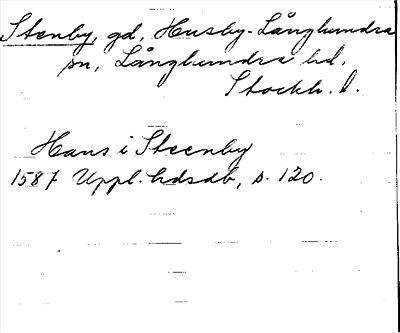 Stenby, gd, Husby-Långhundra
sn, Långhundra hd.
Stockh. l.
Hans i Steenby
1587 Uppl. hdsdb, s. 120.